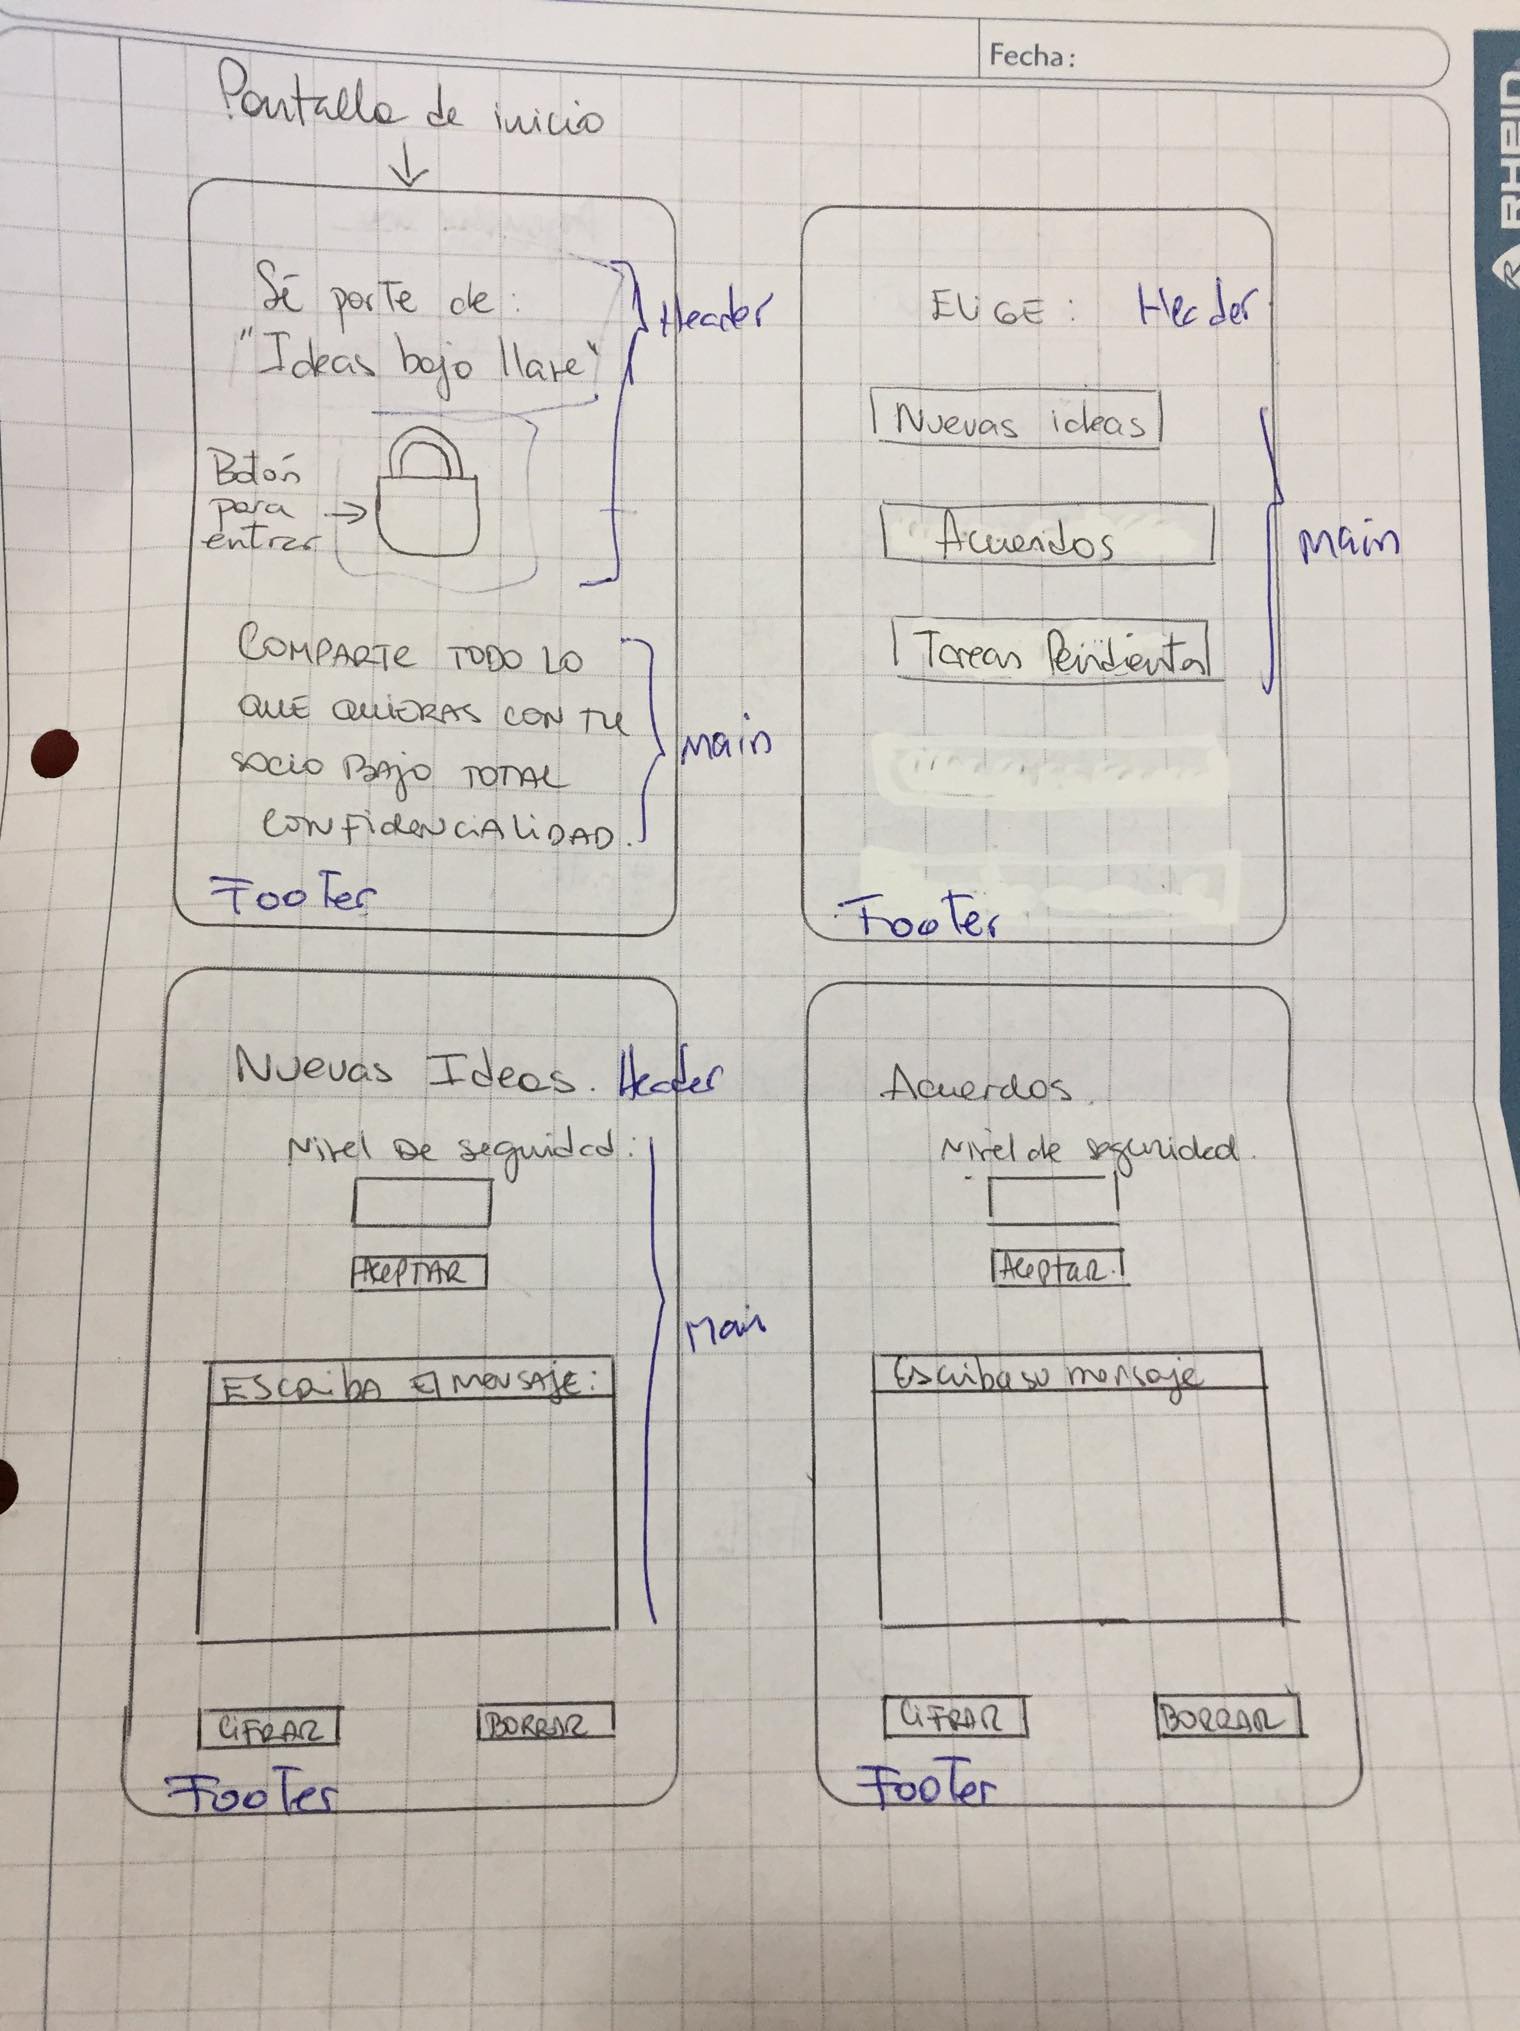 Fecha:
RHEIN
Pantalla de inicio
Sé parte de:
"Ideas bajo llave"
Header
Botón
para
entrar
COMPARTE TODO LO
QUE QUIERAS CON TU
SOCIO BAJO TOTAL
CONFIDENCIALIDAD.
Main
Footer
ELIGE: Header
Nuevas ideas
Acuerdos
Tareas Pendientes
Main
Footer
Nuevas Ideas. Header
Nivel De seguidad:
ACEPTAR
Main
ESCRIBA El MENSAJE:
CIFRAR BORRAR
Footer
Acuerdos.
Nivel de seguridad.
Aceptar.
Escriba su mensaje
CIFRAR BORRAR
Footer